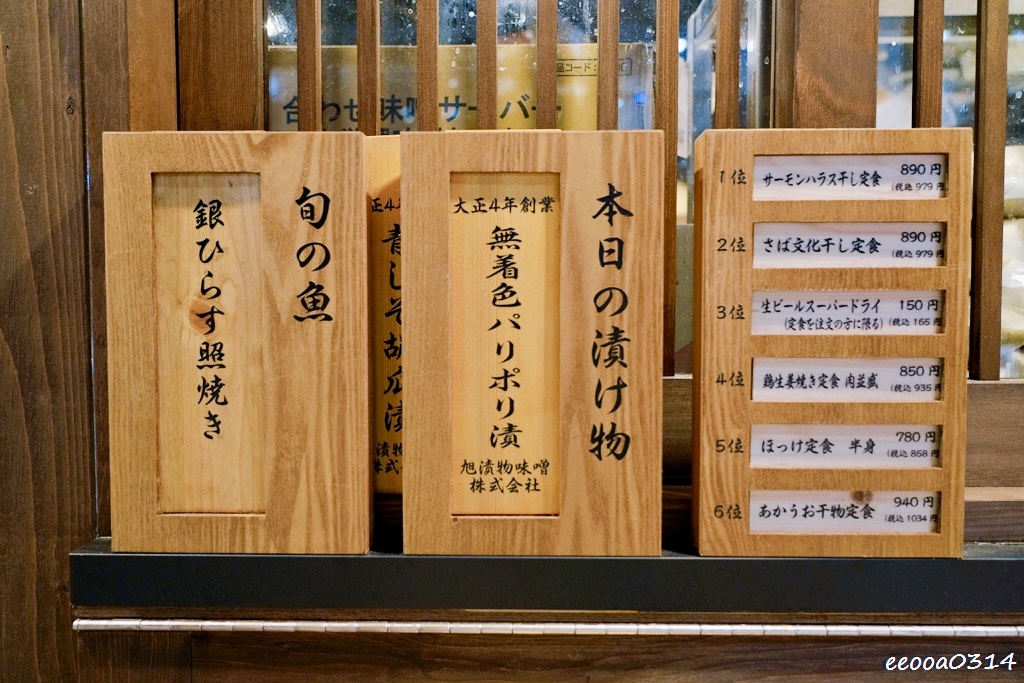 品コード:
合わせ味噌サーバー
旬の魚
銀ひらす照焼き
正4年
青しそ胡瓜漬
漬物
株式
本日の漬け物
大正4年創業
無着色パリポリ漬
旭漬物味噌
株式会社
1位 サーモンハラス干し定食 890円
(税込 979 円
2位 さば文化干し定食 890円
(税込 979 円
3位 生ビールスーパードライ 150円
(定食を注文の方に限る) (税込 165 円
4位 鶏生姜焼き定食 肉並盛 850円
(税込 935 円
5位 ほっけ定食 半身 780円
(税込 858 円
6位 あかうお干物定食 940円
(税込 1034 円
eeooa0314